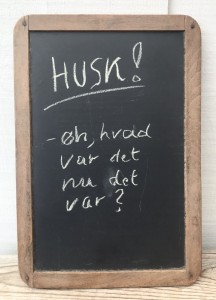 HUSK!
- øh, hvad
var det
nu det
var?